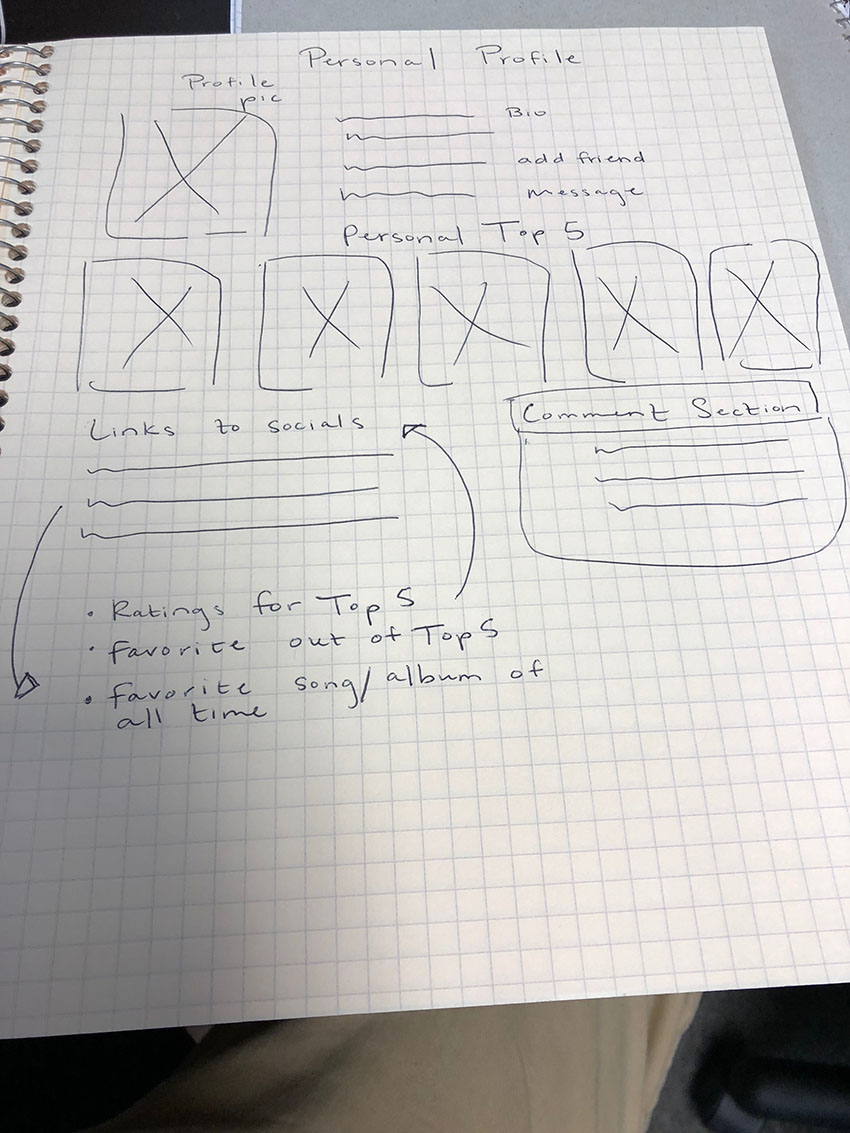 Personal Profile
Profile
pic
Bio
add friend
message
Personal Top 5
Links to socials
Comment Section
• Ratings for Top 5
• favorite out of Top 5
• favorite song/album of
all time